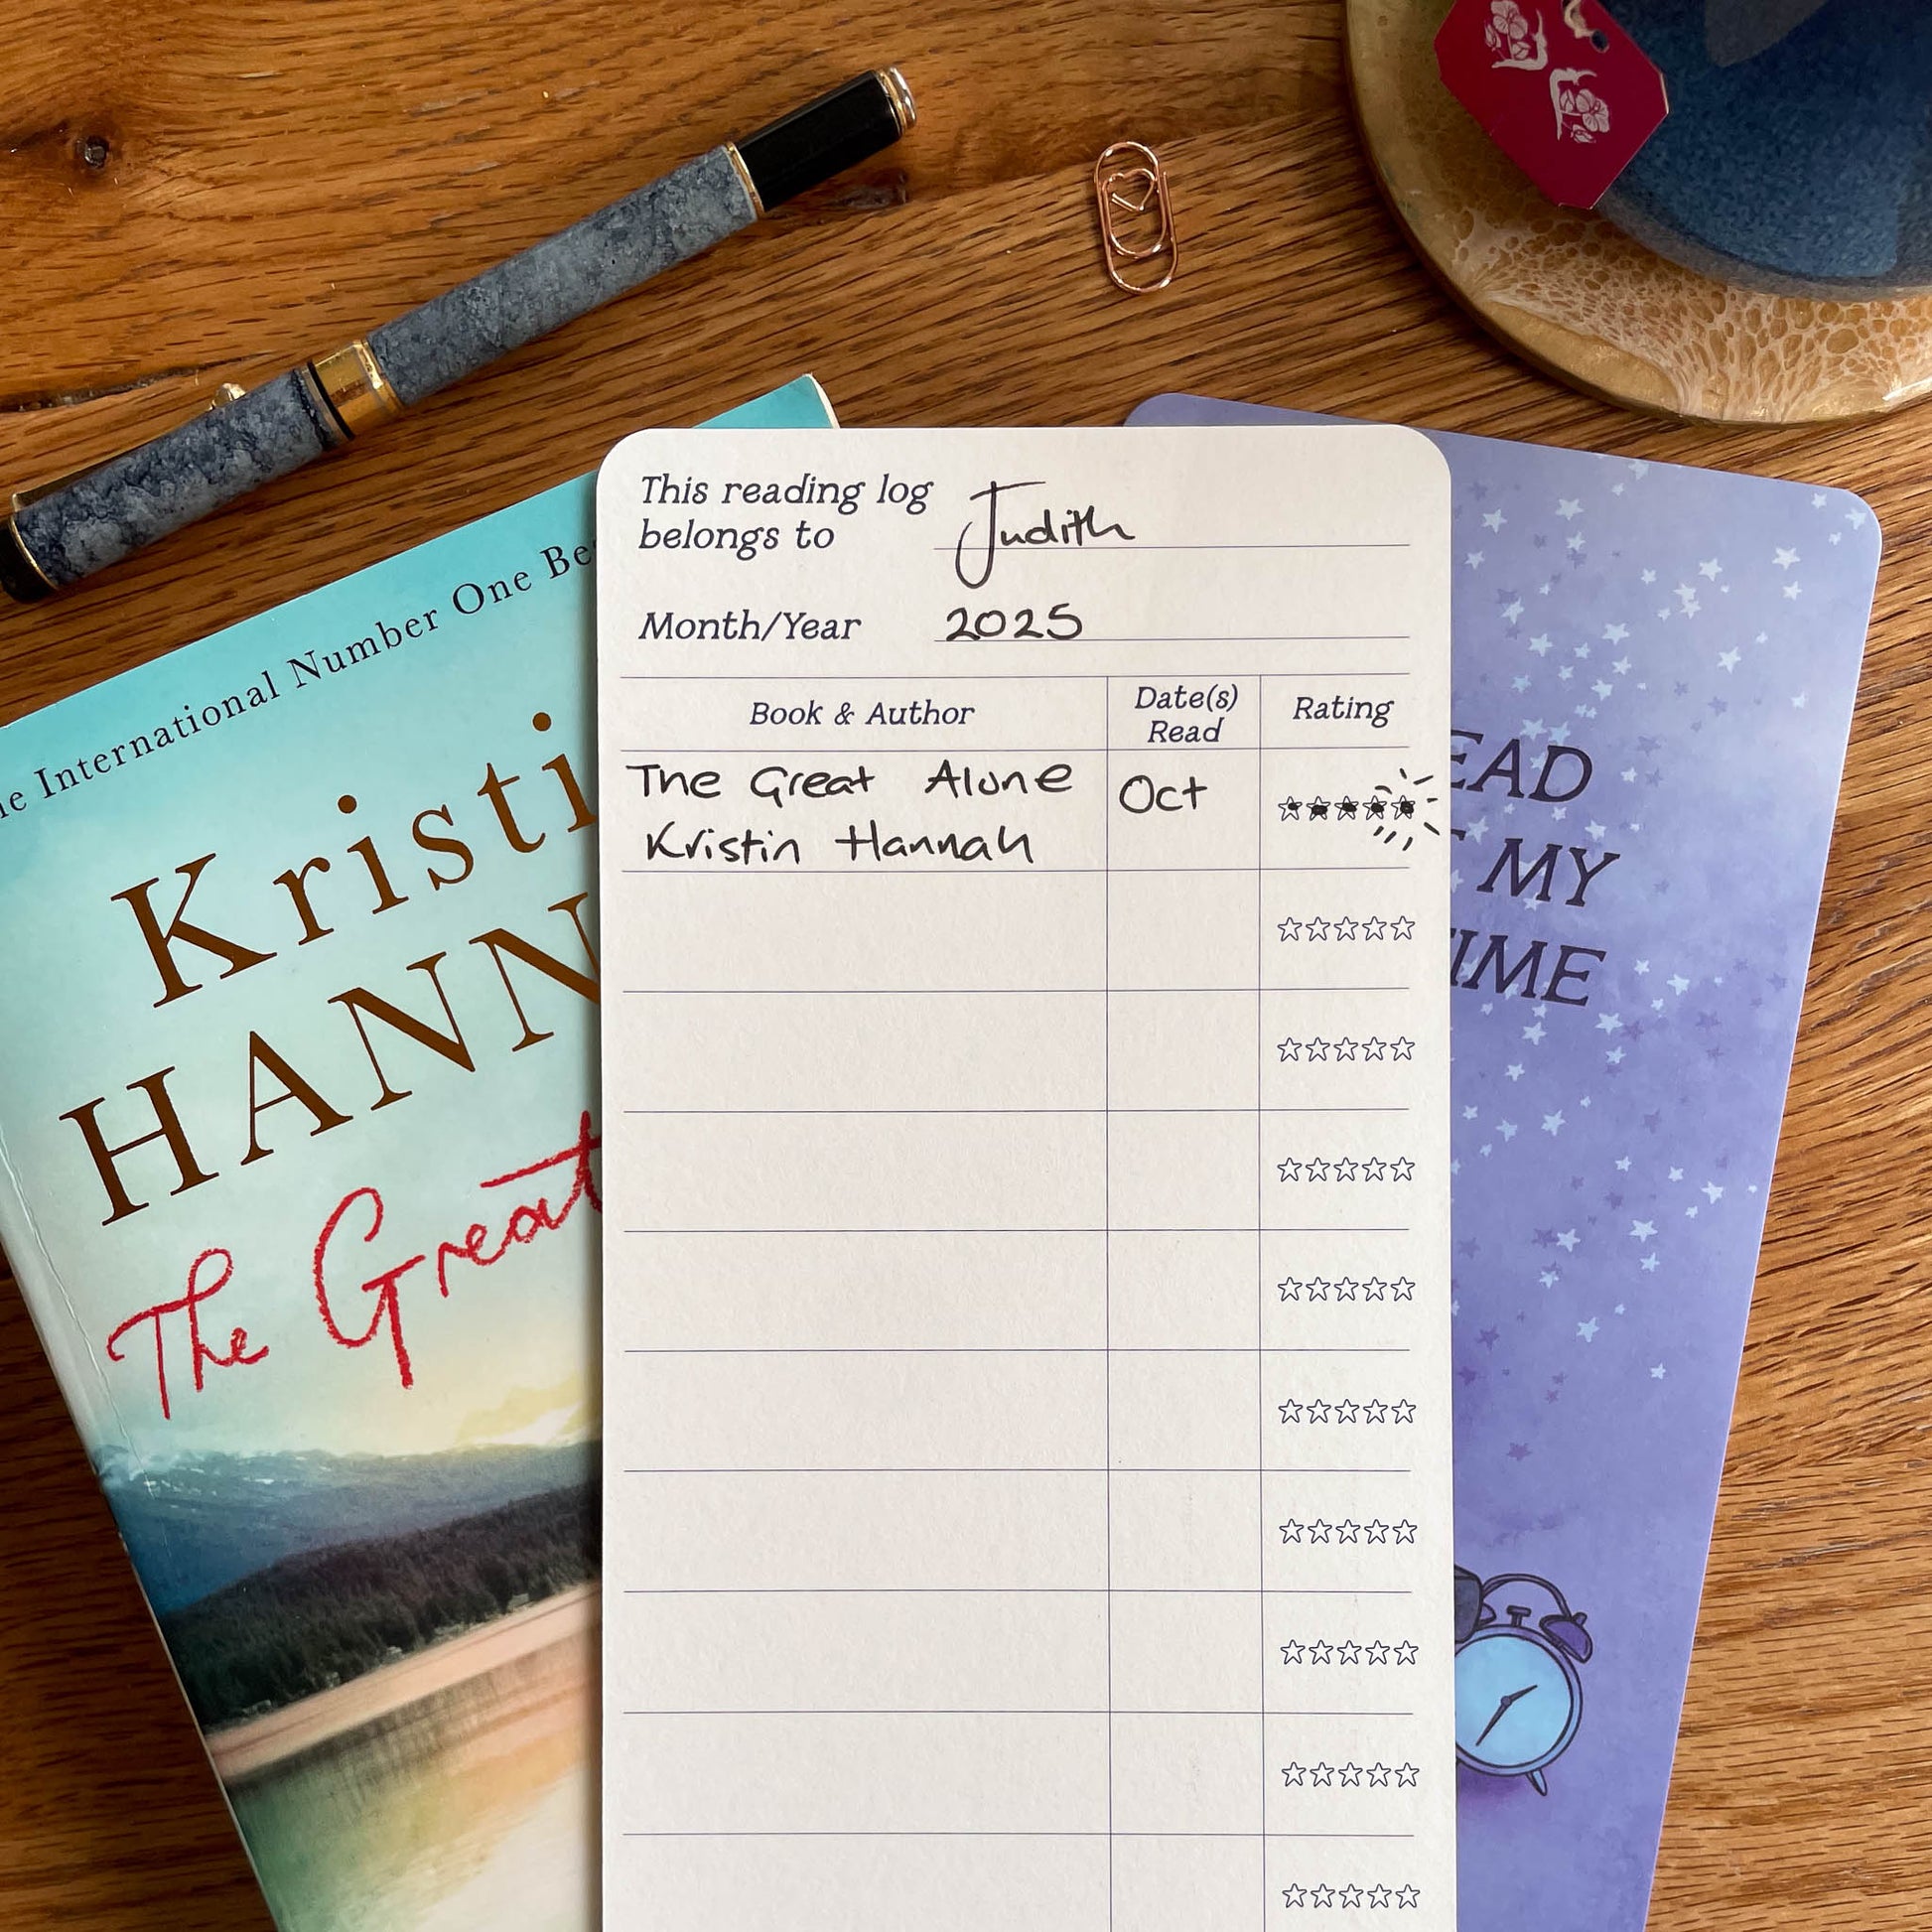 This reading log
belongs to Judith
Month/Year 2025
Book & Author
Date(s)
Read
Rating
The Great Alone
Kristin Hannah
Oct
International Number One
Kristi
HANN
The Great
EAD
MY
IME